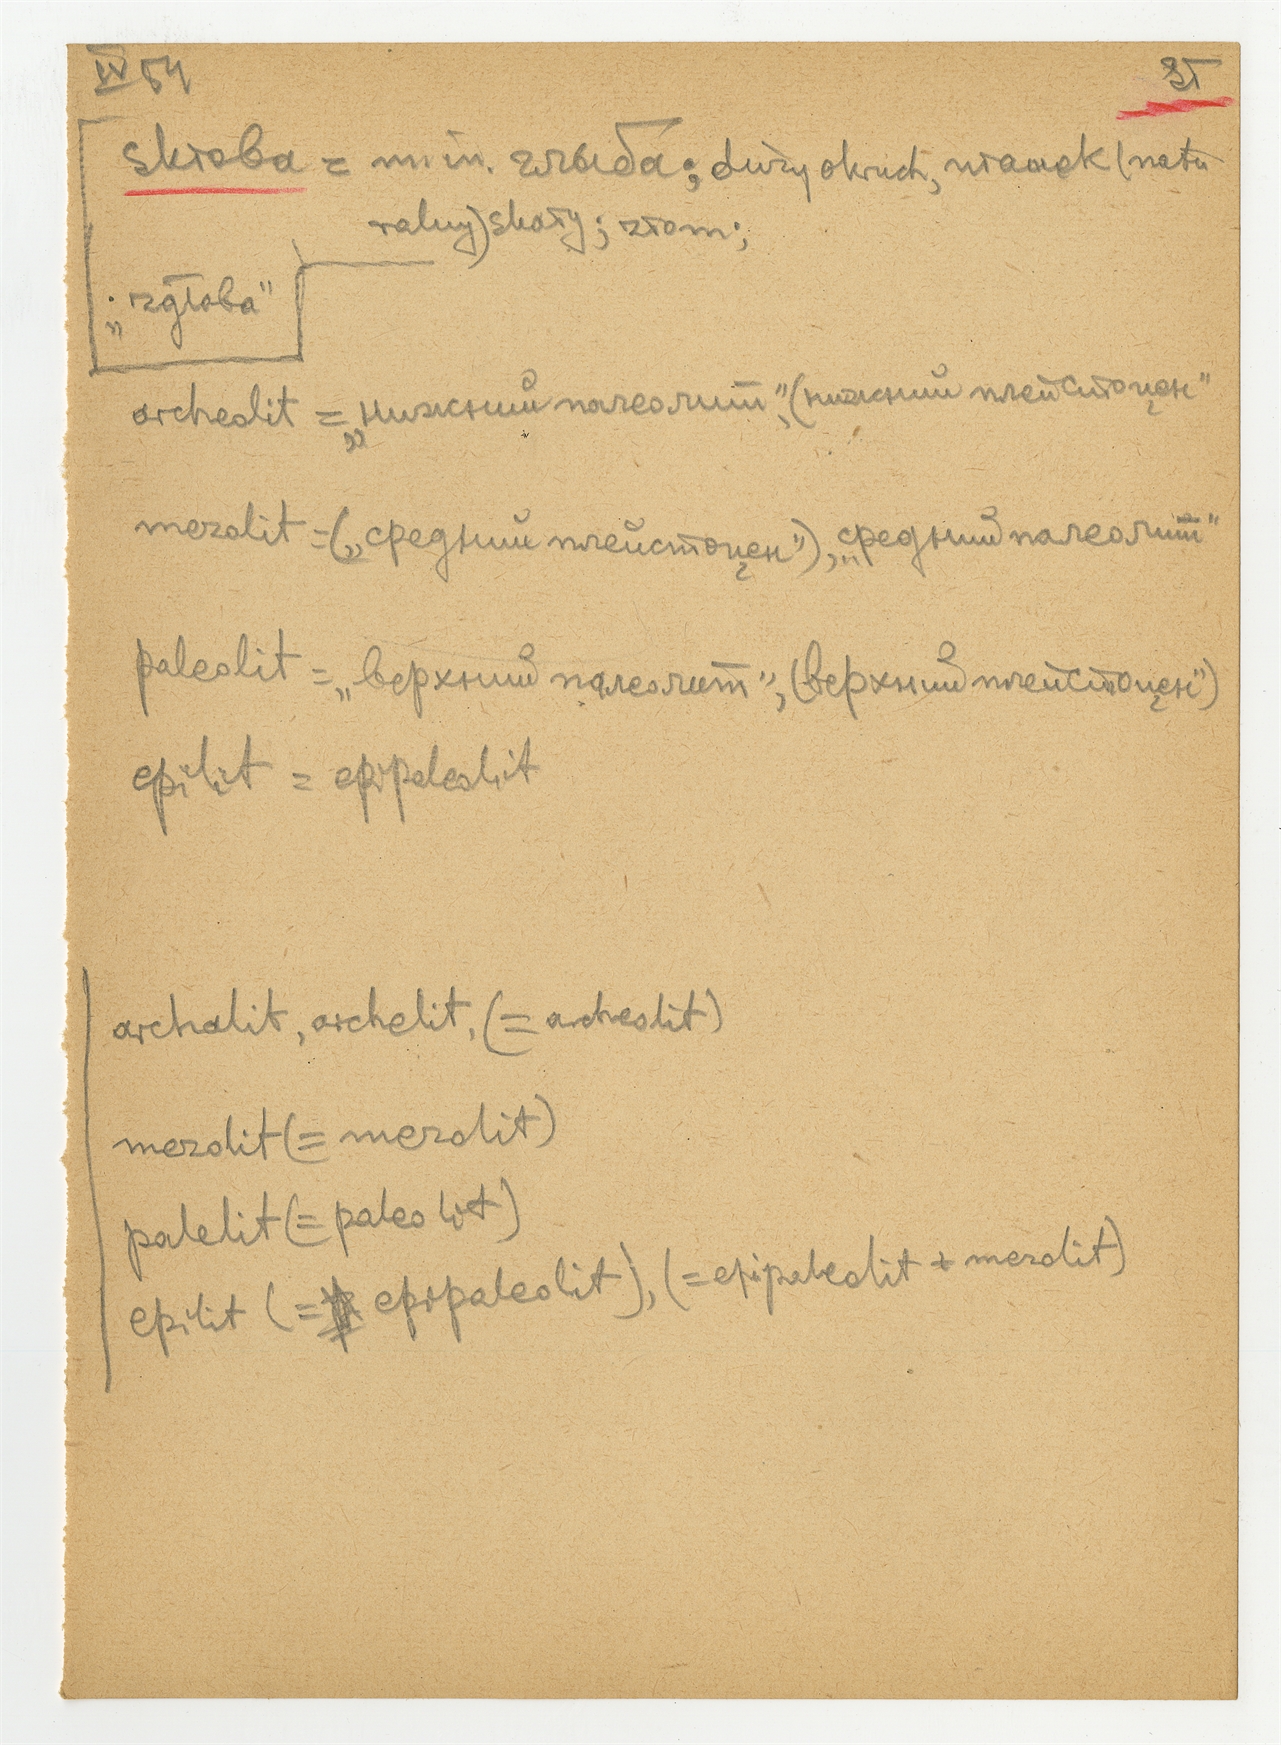 IV 54
skłoba = min. глыба; duży okruch, ułamek (natu
ralny) skały; złom;
„zgłoba"
archeolit = „нижний палеолит", (нижний плейстоцен"
mezolit = („средний плейстоцен"), „средний палеолит"
paleolit = „верхний палеолит", (верхний плейстоцен")
epilit = epipaleolit
archalit, archelit, (= archeolit)
mezolit (= mezolit)
palelit (= paleolit)
epilit (= epipaleolit), (= epipaleolit + mezolit)